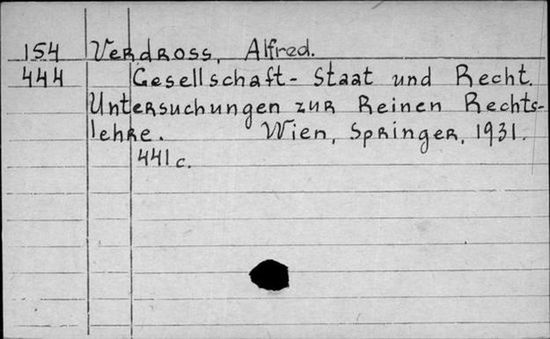 154 Verdross, Alfred.
444 Gesellschaft- Staat und Recht.
Untersuchungen zur Reinen Rechts-
lehre. Wien, Springer, 1931.
441 c.